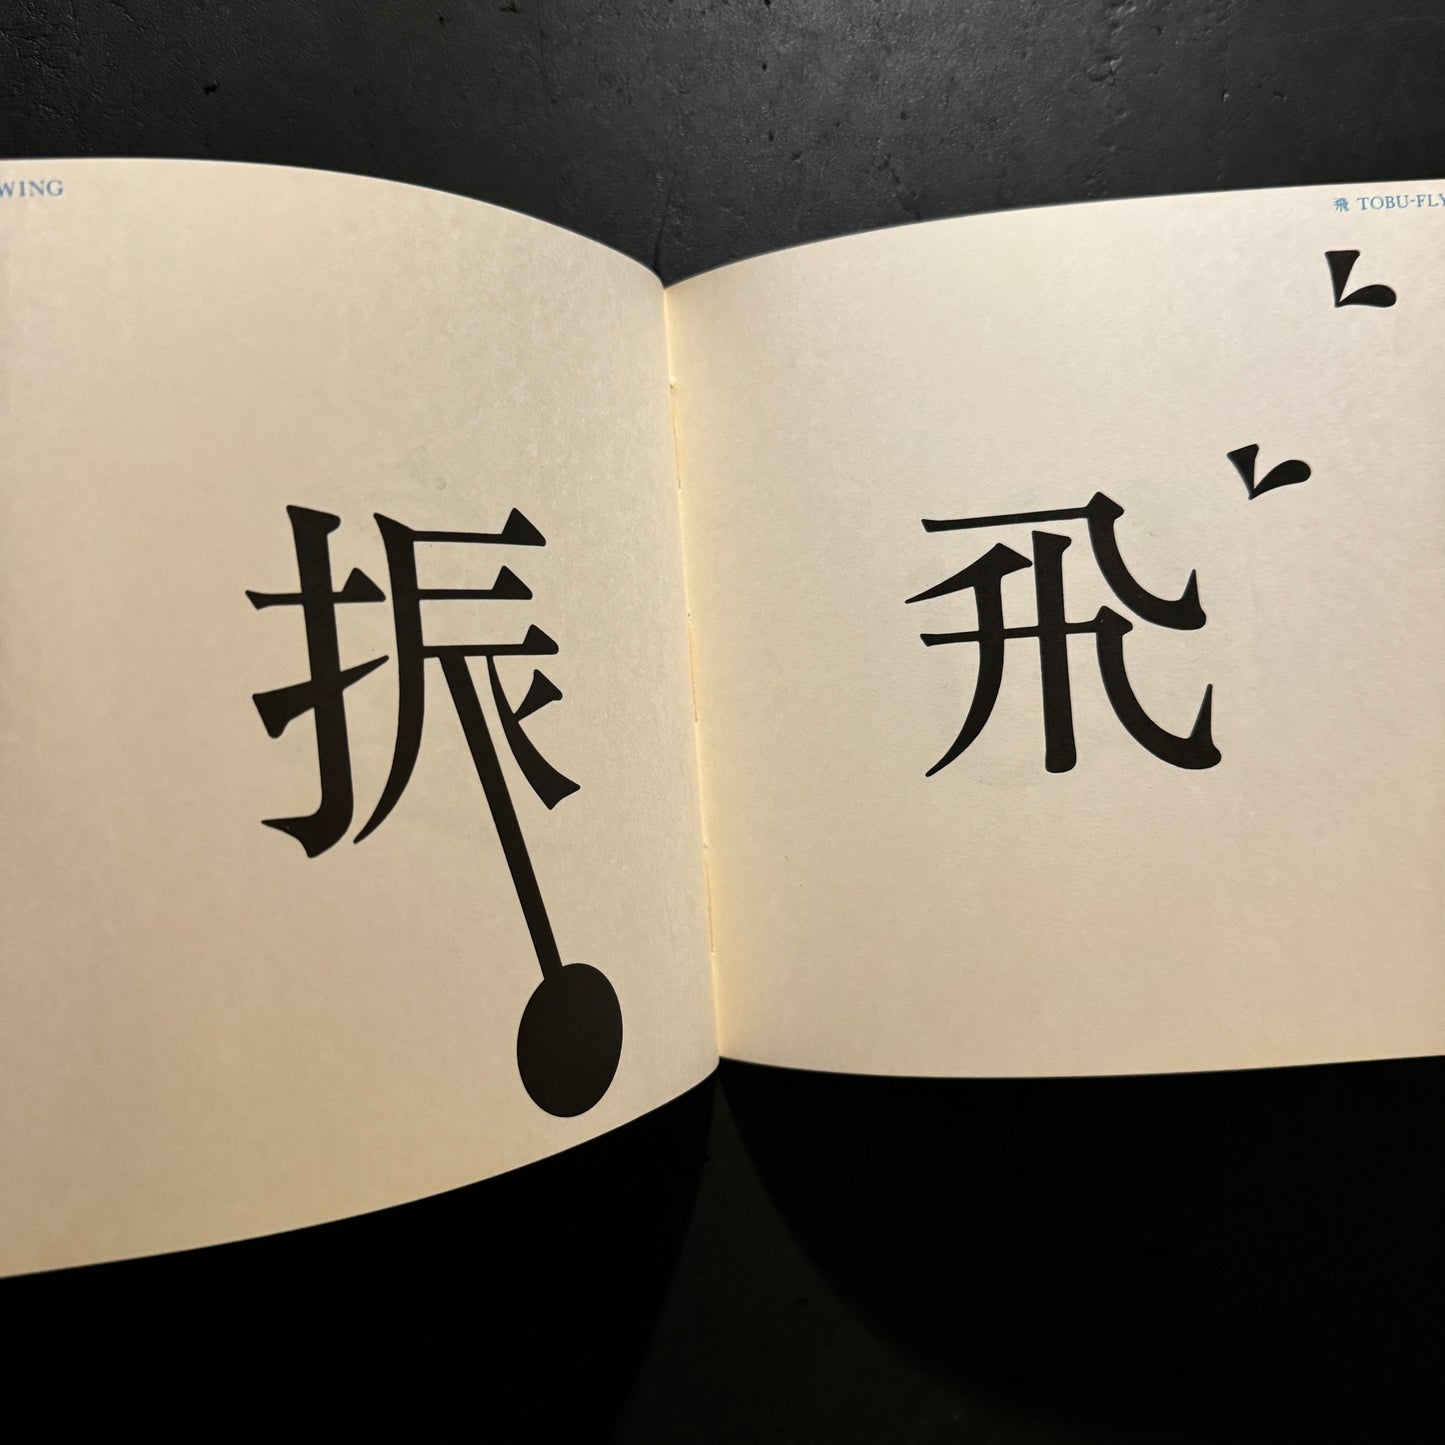 WING
振
飛 TOBU-FLY
飛